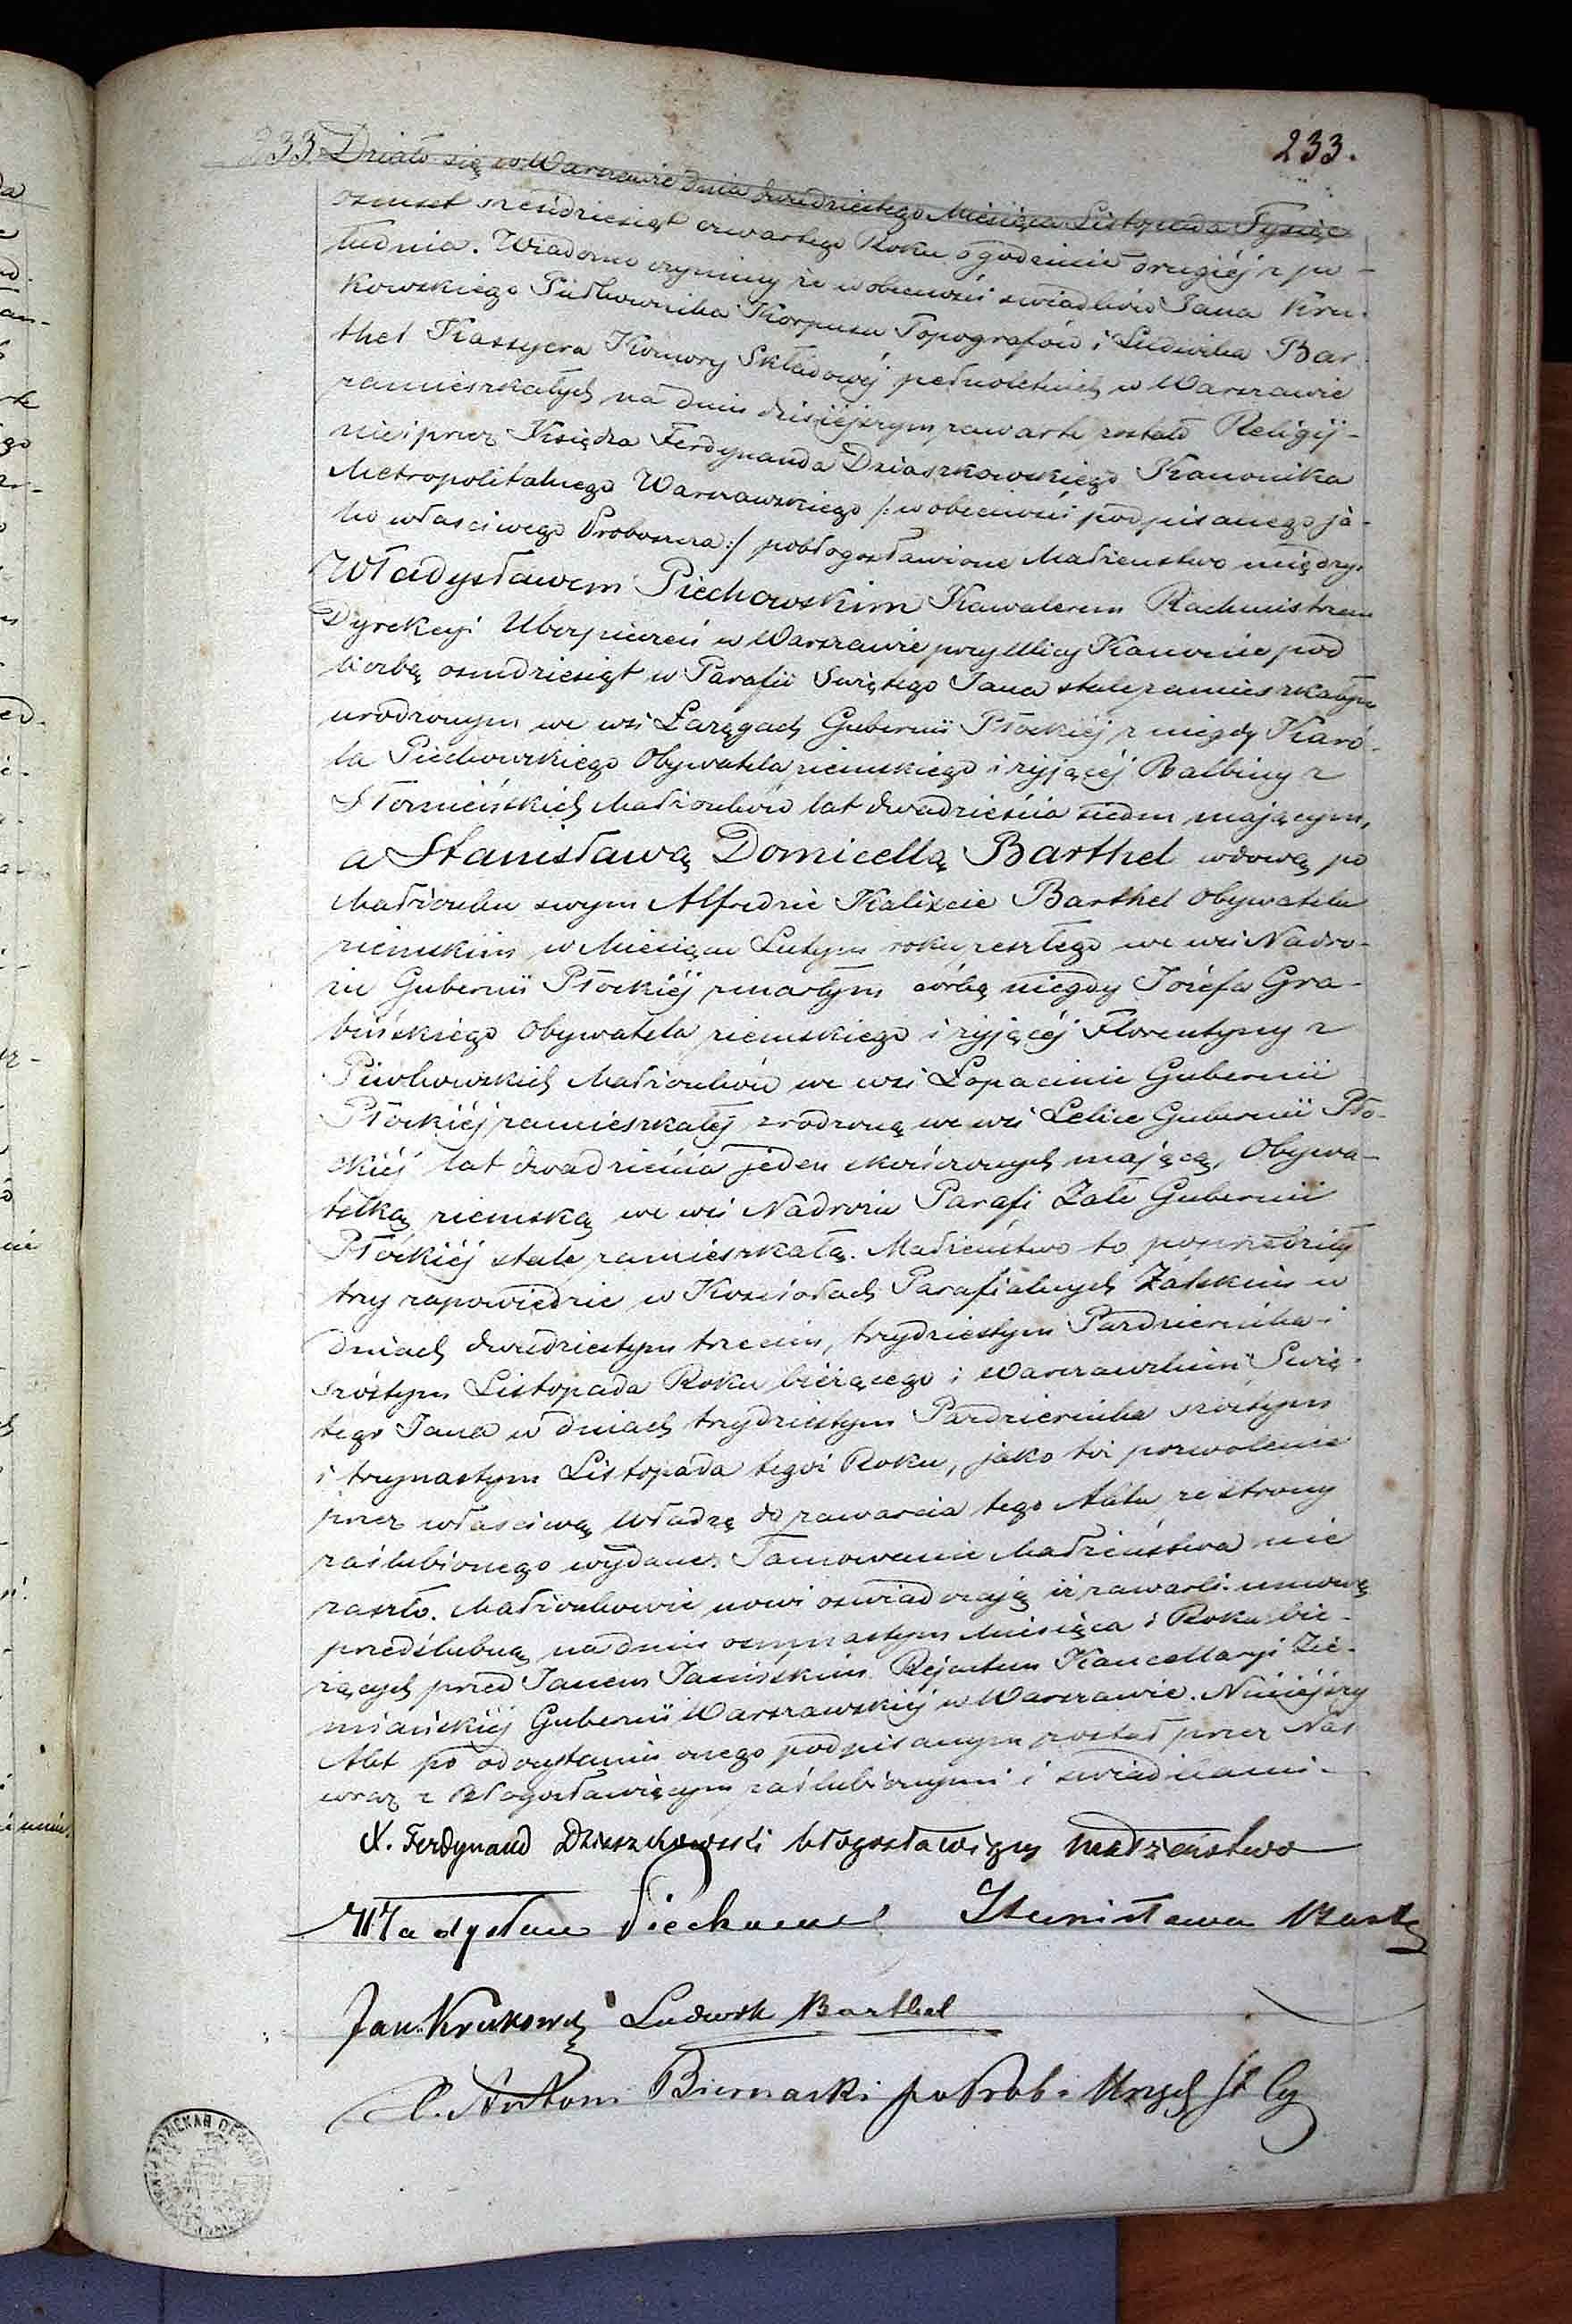 233.
233. Działo się w Warszawie dnia dwudziestego Miesiąca Listopada Tysiąc
osmset sześćdziesiąt czwartego Roku o godzinie drugiéj z po-
łudnia. Wiadomo czynimy że w obecności swiadków Jana Kru-
kowskiego Pułkownika Korpusu Topografów i Ludwika Bar-
thel Kassyera Komory Składowéj pełnoletnich w Warszawie
zamieszkałych na dniu dzisiéjszym zawarte zostało Religij-
nie i przez Księdza Ferdynanda Dziaszkowskiego Kanonika
Metropolitalnego Warszawskiego /: w obecności podpisanego ja-
ko własciwego Proboszcza :/ pobłogosławione Małżeństwo między
Władysławem Piechowskim Kawalerem Rachmistrzem
Dyrekcyi Ubezpieczeń w Warszawie przy Ulicy Kanonie pod
liczbą osmdziesiąt w Parafii Swiętego Jana stale zamieszkałym
urodzonym we wsi Łazęgach Gubernii Płockiéj z niegdy Karo-
la Piechowskiego Obywatela ziemskiego i żyjącéj Balbiny z
Słomińskich Małżonków lat dwadzieścia siedm mającym,
a Stanisławą Domicellą Barthel wdową po
Małżonku swym Alfredzie Kalixcie Barthel Obywatelu
ziemskim w Miesiącu Lutym roku zeszłego we wsi Nadro-
żu Gubernii Płockiéj zmarłym córką niegdy Józefa Gra-
bińskiego Obywatela ziemskiego i żyjącéj Florentyny z
Piwkowskich Małżonków we wsi Łopacinie Gubernii
Płockiéj zamieszkałéj zrodzoną we wsi Lelice Gubernii Pło-
ckiéj lat dwadzieścia jeden skończonych mającą, Obywa-
telką ziemską we wsi Nadrożu Parafi Żałe Gubernii
Płockiéj stale zamieszkałą. Małżeństwo to poprzedziły
trzy zapowiedzie w Kościołach Parafialnych Żałskim w
dniach dwudziestym trzecim, trzydziestym Pazdziernika i
szóstym Listopada Roku bieżącego i Warszawskim Swię-
tego Jana w dniach trzydziestym Pazdziernika szóstym
i trzynastym Listopada tegoż Roku, jako też pozwolenie
przez właściwą Władzę do zawarcia tego Aktu ze strony
zaślubionego wydane. Tamowanie Małżeństwa nie
zaszło. Małżonkowie nowi oswiadczają iż zawarli umowę
przedślubną na dniu osmnastym Miesiąca i Roku bie-
żących przed Janem Jasińskim Rejentem Kancellaryi Zie-
miańskiéj Gubernii Warszawskiéj w Warszawie. Niniéjszy
Akt po odczytaniu onego podpisanym został przez Nas
wraz z Błogosławiącym, zaślubionymi i swiadkami.
X. Ferdynand Dziaszkowski błogosławiący małżeństwo
Władysław Piechowski Stanisława Barthel
Jan Krukowski Ludwik Barthel
X. Antoni Biernacki